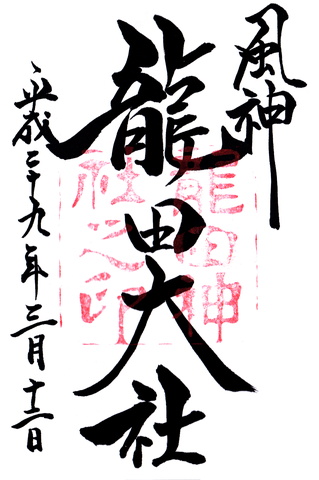 風神
龍田大社
平成二十九年三月十二日
龍田神
社之印